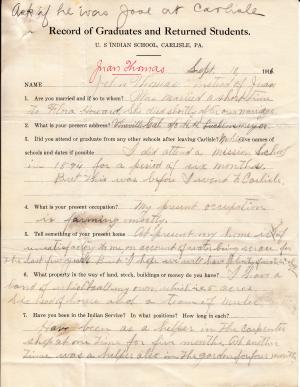 Ask if he was Jose at Carlisle
Record of Graduates and Returned Students.
U. S INDIAN SCHOOL, CARLISLE, PA.
Juan Thomas
Sept. 191
NAME John Thomas instead of Juan
1. Are you married and if so to whom? Was married a short time
to Flora she was shortly after our marriage
2. What is your present address?
3. Did you attend or graduate from any other schools after leaving Carlisle? No Give names
of schools and dates if possible I did attend a mission school
in 1894 for a period of six months.
But this was before I went to Carlisle.
4. What is your present occupation? My present occupation
is farming mostly.
5. Tell something of your present home At present my home is
unsatisfactory to me on account of water being scarce for
the last few But I hope we will have
6. What property in the way of land, stocks, building or money do you have? I have a
land of which I call my own which is 5 acres.
horse and a team of mules.
7. Have you been in the Indian Service? In what positions? How long in each?
Have been as a helper in the carpenter
shop at one time for five months. At another
time was a helper also in the garden for four months